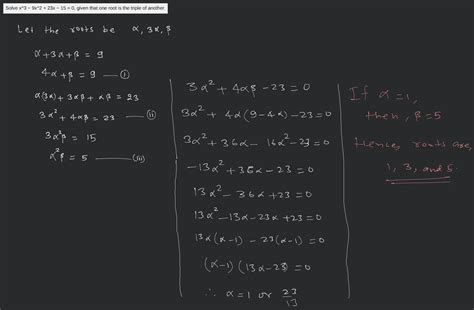 Solve x^3 − 9x^2 + 23x − 15 = 0, given that one root is the triple of another.
Let the roots be α, 3α, β
α + 3α + β = 9
4α + β = 9 —— (i)
α(3α) + 3αβ + αβ = 23
3α² + 4αβ = 23 —— (ii)
3α²β = 15
α²β = 5 —— (iii)
3α² + 4αβ − 23 = 0
3α² + 4α(9 − 4α) − 23 = 0
3α² + 36α − 16α² − 23 = 0
−13α² + 36α − 23 = 0
13α² − 36α + 23 = 0
13α² − 13α − 23α + 23 = 0
13α(α − 1) − 23(α − 1) = 0
(α − 1) (13α − 23) = 0
∴ α = 1 or 23/13
If α = 1,
then, β = 5
Hence, roots are,
1, 3, and 5.